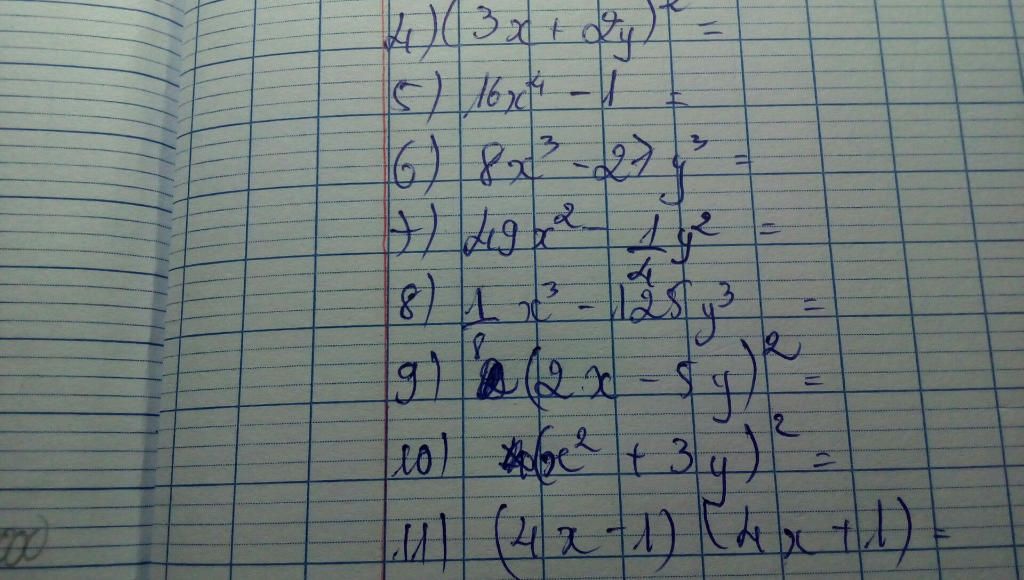 4) (3x + 2y)² =
5) 16x⁴ - 1 =
6) 8x³ - 27y³ =
7) 49x² - 1/4 y² =
8) 1/8 x³ - 125y³ =
9) (2x - 5y)² =
10) (x² + 3y)² =
11) (4x - 1) (4x + 1) =